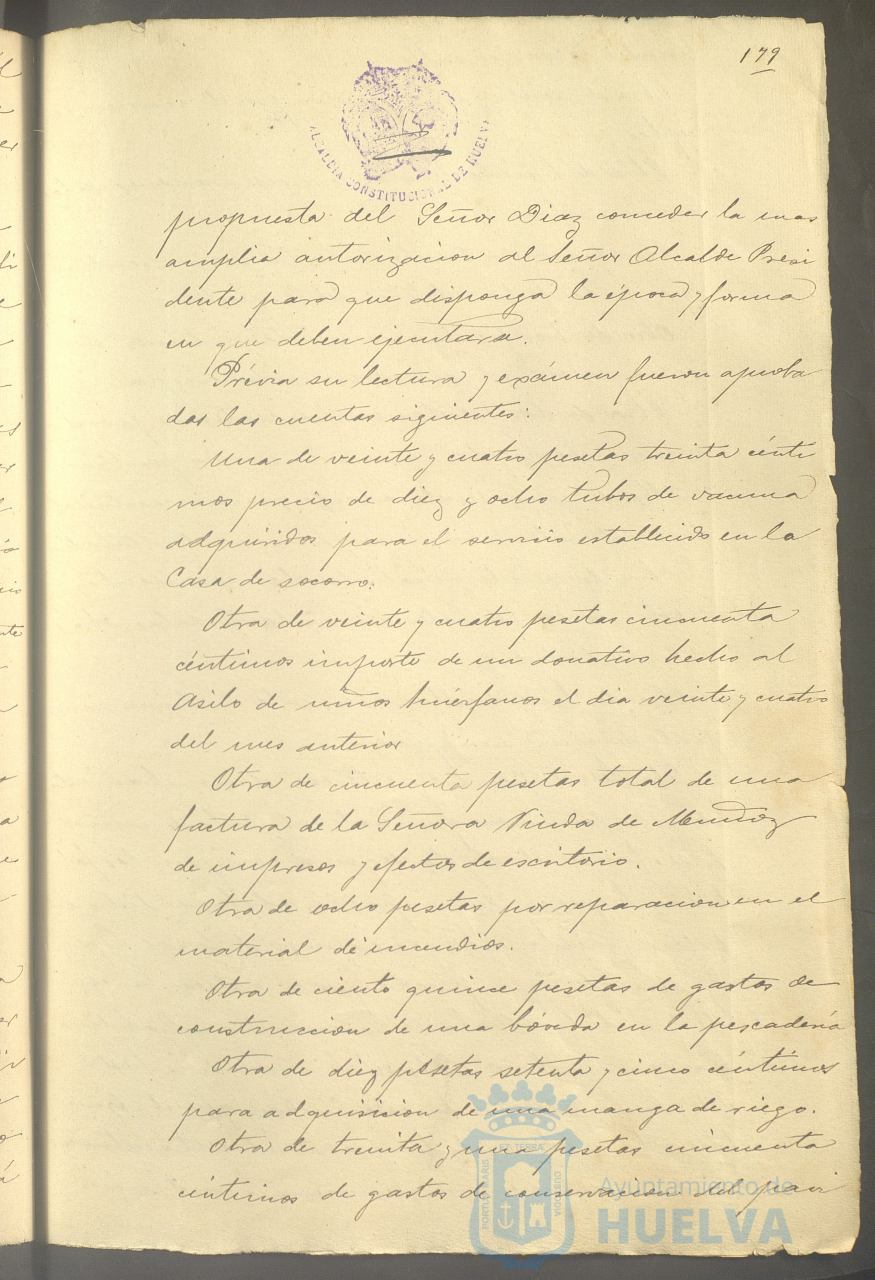 179
ALCALDIA CONSTITUCIONAL DE HUELVA
propuesta del Señor Diaz conceder la mas
amplia autorizacion al Señor Alcalde Presi
dente para que disponga la época y forma
en que deben ejecutarse.
Prévia su lectura y exámen fueron aproba
das las cuentas siguientes:
Una de veinte y cuatro pesetas treinta cénti
mos precio de diez y ocho tubos de vacuna
adquiridos para el servicio establecido en la
Casa de socorro.
Otra de veinte y cuatro pesetas cincuenta
céntimos importe de un donativo hecho al
Asilo de niños huérfanos el dia veinte y cuatro
del mes anterior
Otra de cincuenta pesetas total de una
factura de la Señora Viuda de Mendoz
de impresos y efectos de escritorio.
Otra de ocho pesetas por reparacion en el
material de incendios.
Otra de ciento quince pesetas de gastos de
construccion de una bóveda en la pescadería
Otra de diez pesetas setenta y cinco céntimos
para adquisicion de una manga de riego.
Otra de treinta y una pesetas cincuenta
céntimos de gastos de conservacion del pavi
PORTUS MARIS ET TERRÆ CUSTODIA
Ayuntamiento de
HUELVA